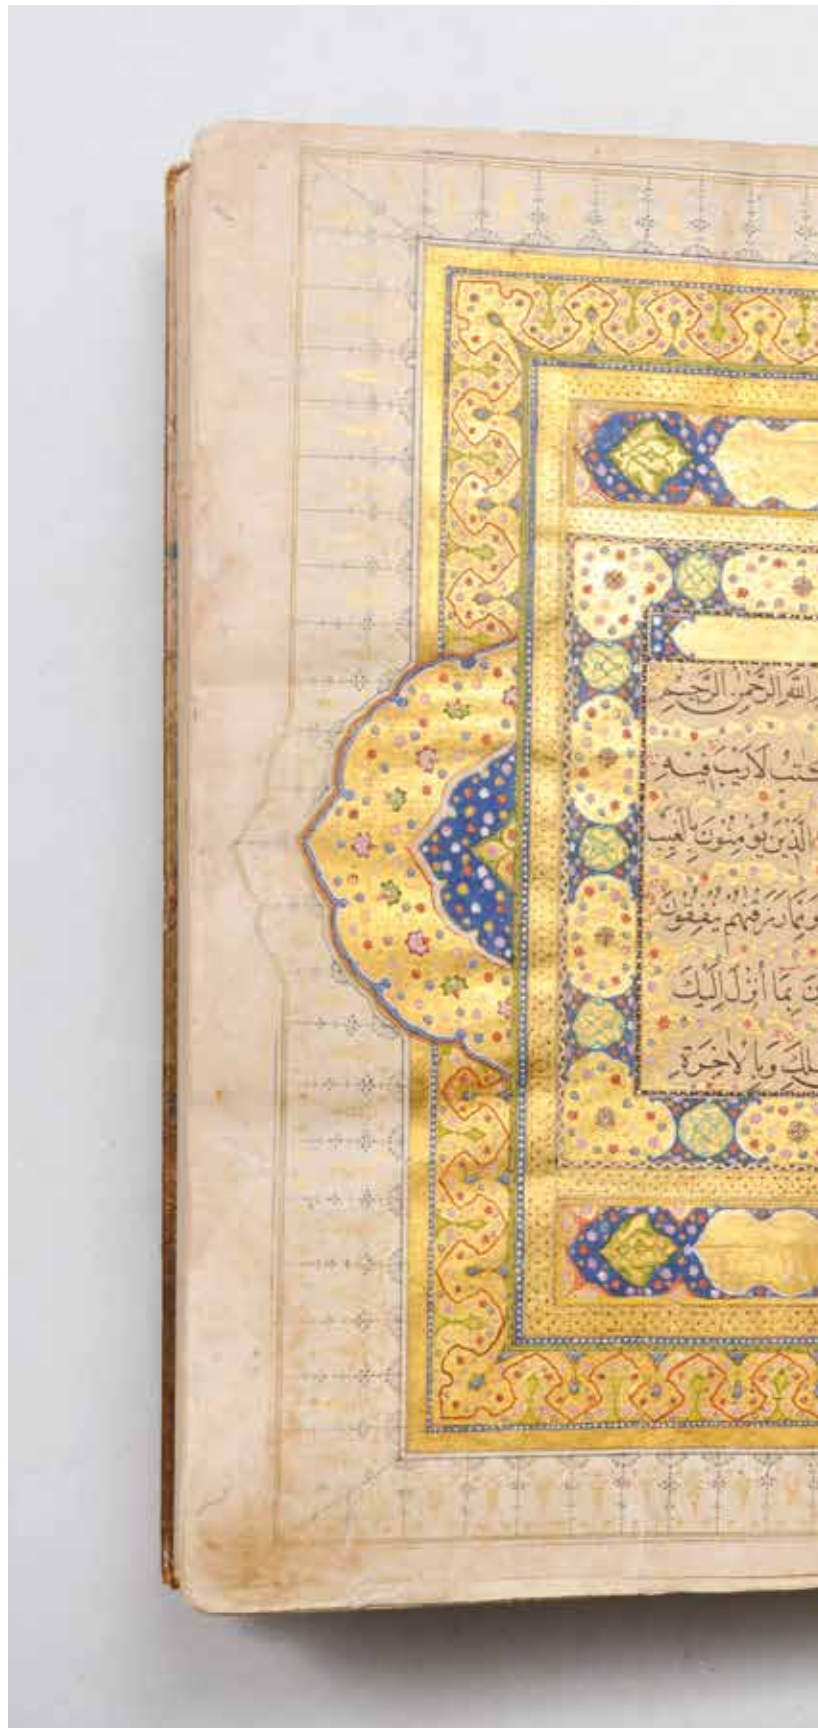 اللّٰهِ الرَّحْمٰنِ الرَّحِيْمِ
كتٰبُ لَارَيْبَ فِيْهِ
الَّذِيْنَ يُؤْمِنُوْنَ بِالْغَيْبِ
وَمِمَّا رَزَقْنٰهُمْ يُنْفِقُوْنَ
بِمَا أُنْزِلَ اِلَيْكَ
وَبِالْاٰخِرَةِ